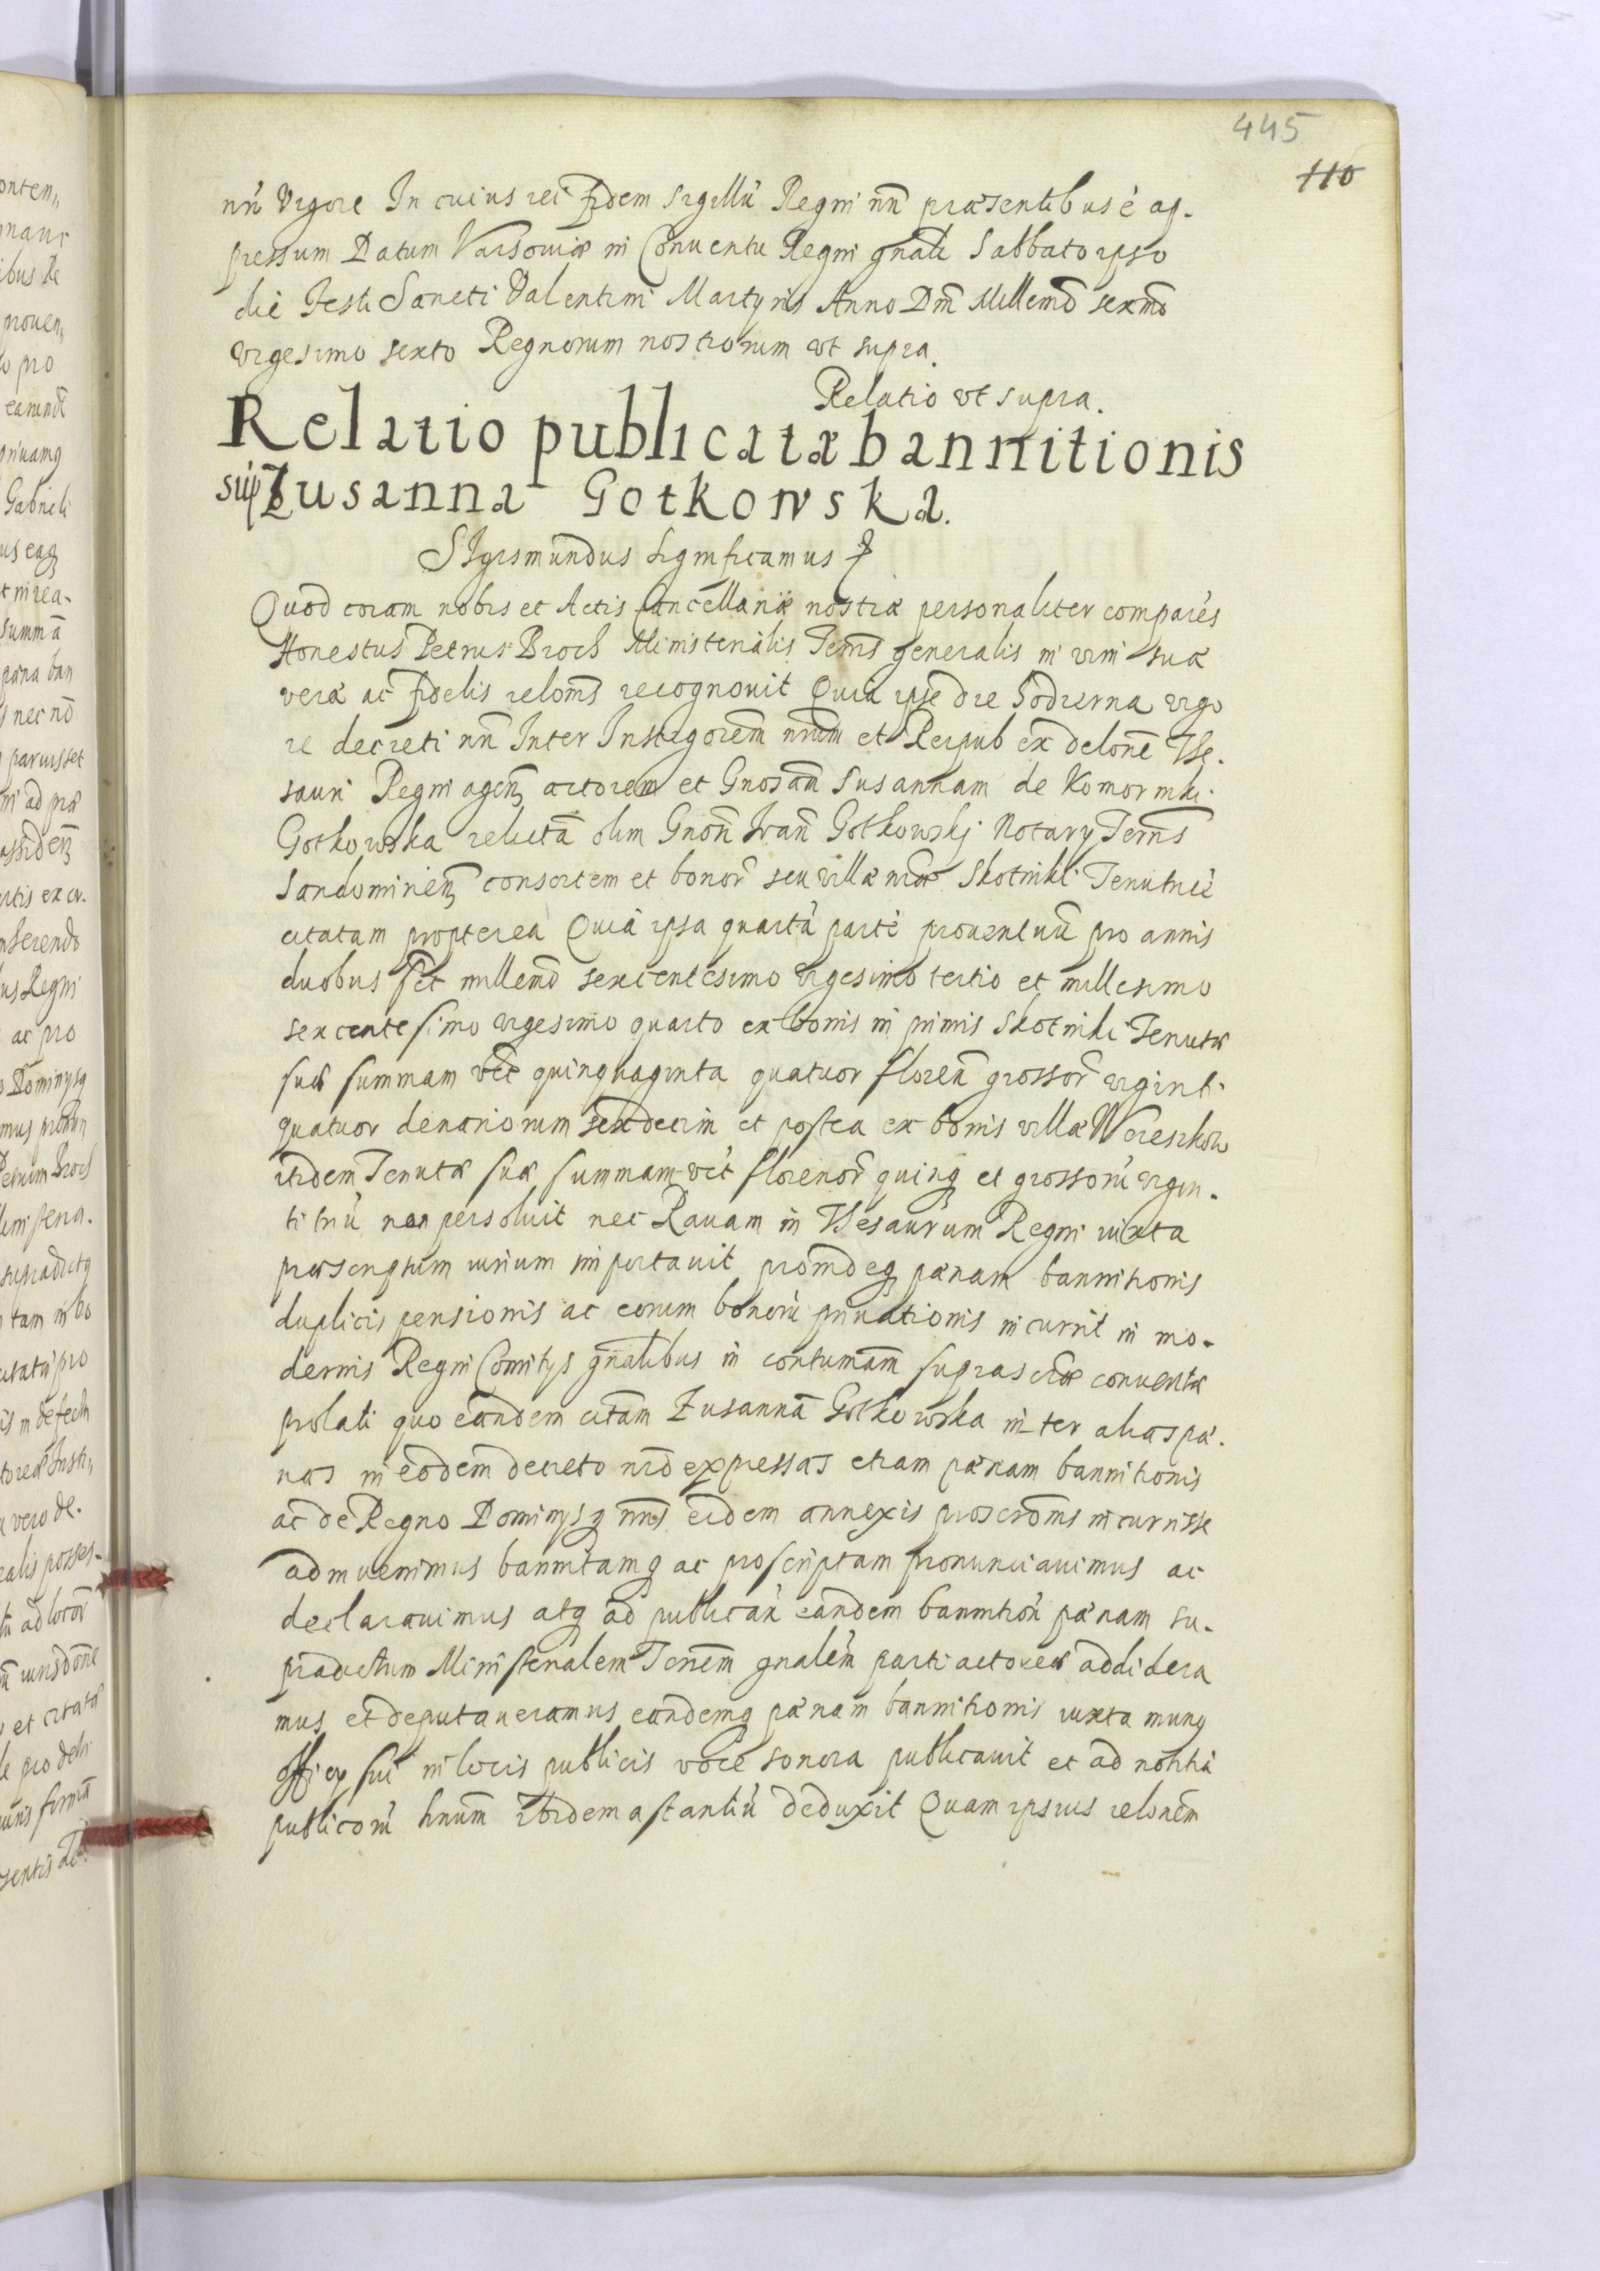 445
110
nrũ vigore In cuius rei fidem sigillũ Regni nr̃m præsentibus ẽ ap-
pressum Datum Varsoviæ in Conventu Regni gñali Sabbato ipso
die Festi Sancti Valentini Martyris Anno Dñi Millemo sexmo
vigesimo sexto Regnorum nostrorum vt supra.
Relatio vt supra.
Relatio publicatæ bannitionis
sup Zusanna Gotkowska.
SIgismundus significamus
Quod coram nobis et Actis Cancellariæ nostræ personaliter comparẽs
Honestus Petrus Broch Ministerialis Terrs generalis in vim suæ
veræ ac fidelis relõnis recognovit Quia ipse die hodierna vigo
re decreti nri Inter Instigorem nrum et Reipub ex delõne The-
sauri Regni agen actorem et Gnosam Susannam de Komorniki
Gotkowska relictã olim Gnõsi Ivan Gotkowskj Notary Terrs
Sandomirien consortem et bonor seu villæ nræ Skotniki Tenutriẽ
citatam propterea Quia ipsa quartã partẽ proventuũ pro annis
duobus sct millemo sexcentesimo vigesimo tertio et millesimo
sexcentesimo vigesimo quarto ex bonis in primis Skotniki Tenutæ
suæ summam vdt quinquaginta quatuor floren grossor viginti
quatuor denariorum sexdecim et postea ex bonis villæ Wereszkow
itidem Tenutæ suæ summam vdt florenor quinq et grossorũ vigin-
ti triũ non persolvit nec Ravam in Thesaurum Regni iuxta
præscriptum iurium importavit proindeq pænam bannitionis
duplicis pensionis ac eorum bonorũ privationis incurrit in mo-
dernis Regni Comitys gñalibus in contumam suprascr̃æ conventæ
prolati quo eandem citam Zusannã Gotkowska in_ter alias pæ-
nas in eodem decreto nrõ expressas etiam pænam bannitionis
ac de Regno Dominysq nris eidem annexis proscrõnis incurrisse
adinvenimus bannitamq ac proscriptam pronunciavimus ac
declaravimus atq ad publican eandem bannitiõn pænam su-
pradictum Ministerialem Terrem gnalem parti actoreæ addidera
mus et deputaveramus eandemq pænam bannitionis iuxta munq
Offiy sui in locis publicis voce sonora publicavit et ad notitiã
publicorũ hnum ibidem astantiũ deduxit Quam ipsius relonem